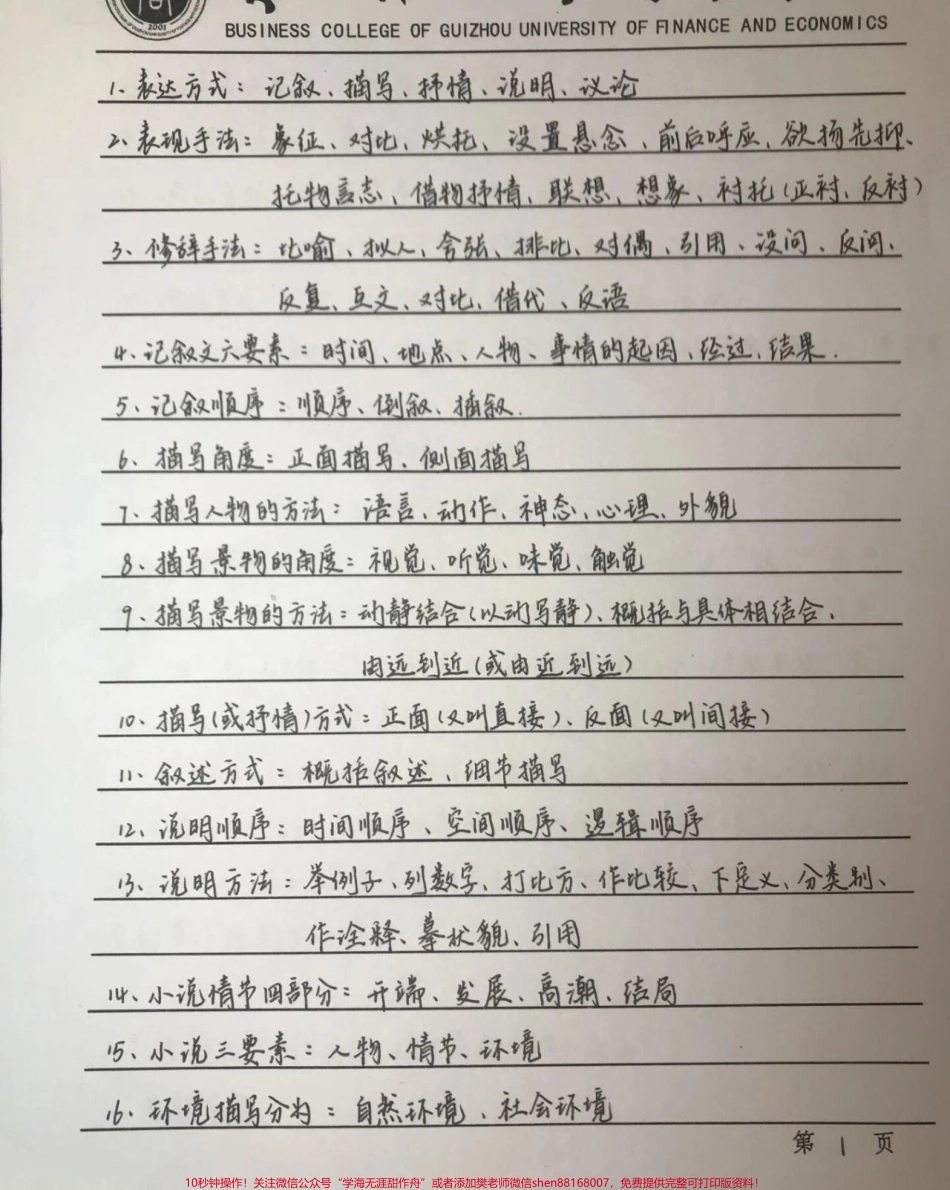 2001
BUSINESS COLLEGE OF GUIZHOU UNIVERSITY OF FINANCE AND ECONOMICS
1、表达方式：记叙、描写、抒情、说明、议论
2、表现手法：象征、对比、烘托、设置悬念、前后呼应、欲扬先抑、
托物言志、借物抒情、联想、想象、衬托（正衬、反衬）
3、修辞手法：比喻、拟人、夸张、排比、对偶、引用、设问、反问、
反复、互文、对比、借代、反语
4、记叙文六要素：时间、地点、人物、事情的起因、经过、结果.
5、记叙顺序：顺序、倒叙、插叙.
6、描写角度：正面描写、侧面描写
7、描写人物的方法：语言、动作、神态、心理、外貌
8、描写景物的角度：视觉、听觉、味觉、触觉
9、描写景物的方法：动静结合（以动写静）、概括与具体相结合、
由远到近（或由近到远）
10、描写（或抒情）方式：正面（又叫直接）、反面（又叫间接）
11、叙述方式：概括叙述、细节描写
12、说明顺序：时间顺序、空间顺序、逻辑顺序
13、说明方法：举例子、列数字、打比方、作比较、下定义、分类别、
作诠释、摹状貌、引用
14、小说情节四部分：开端、发展、高潮、结局
15、小说三要素：人物、情节、环境
16、环境描写分为：自然环境、社会环境
第 1 页
10秒钟操作！关注微信公众号“学海无涯甜作舟”或者添加樊老师微信shen88168007，免费提供完整可打印版资料！